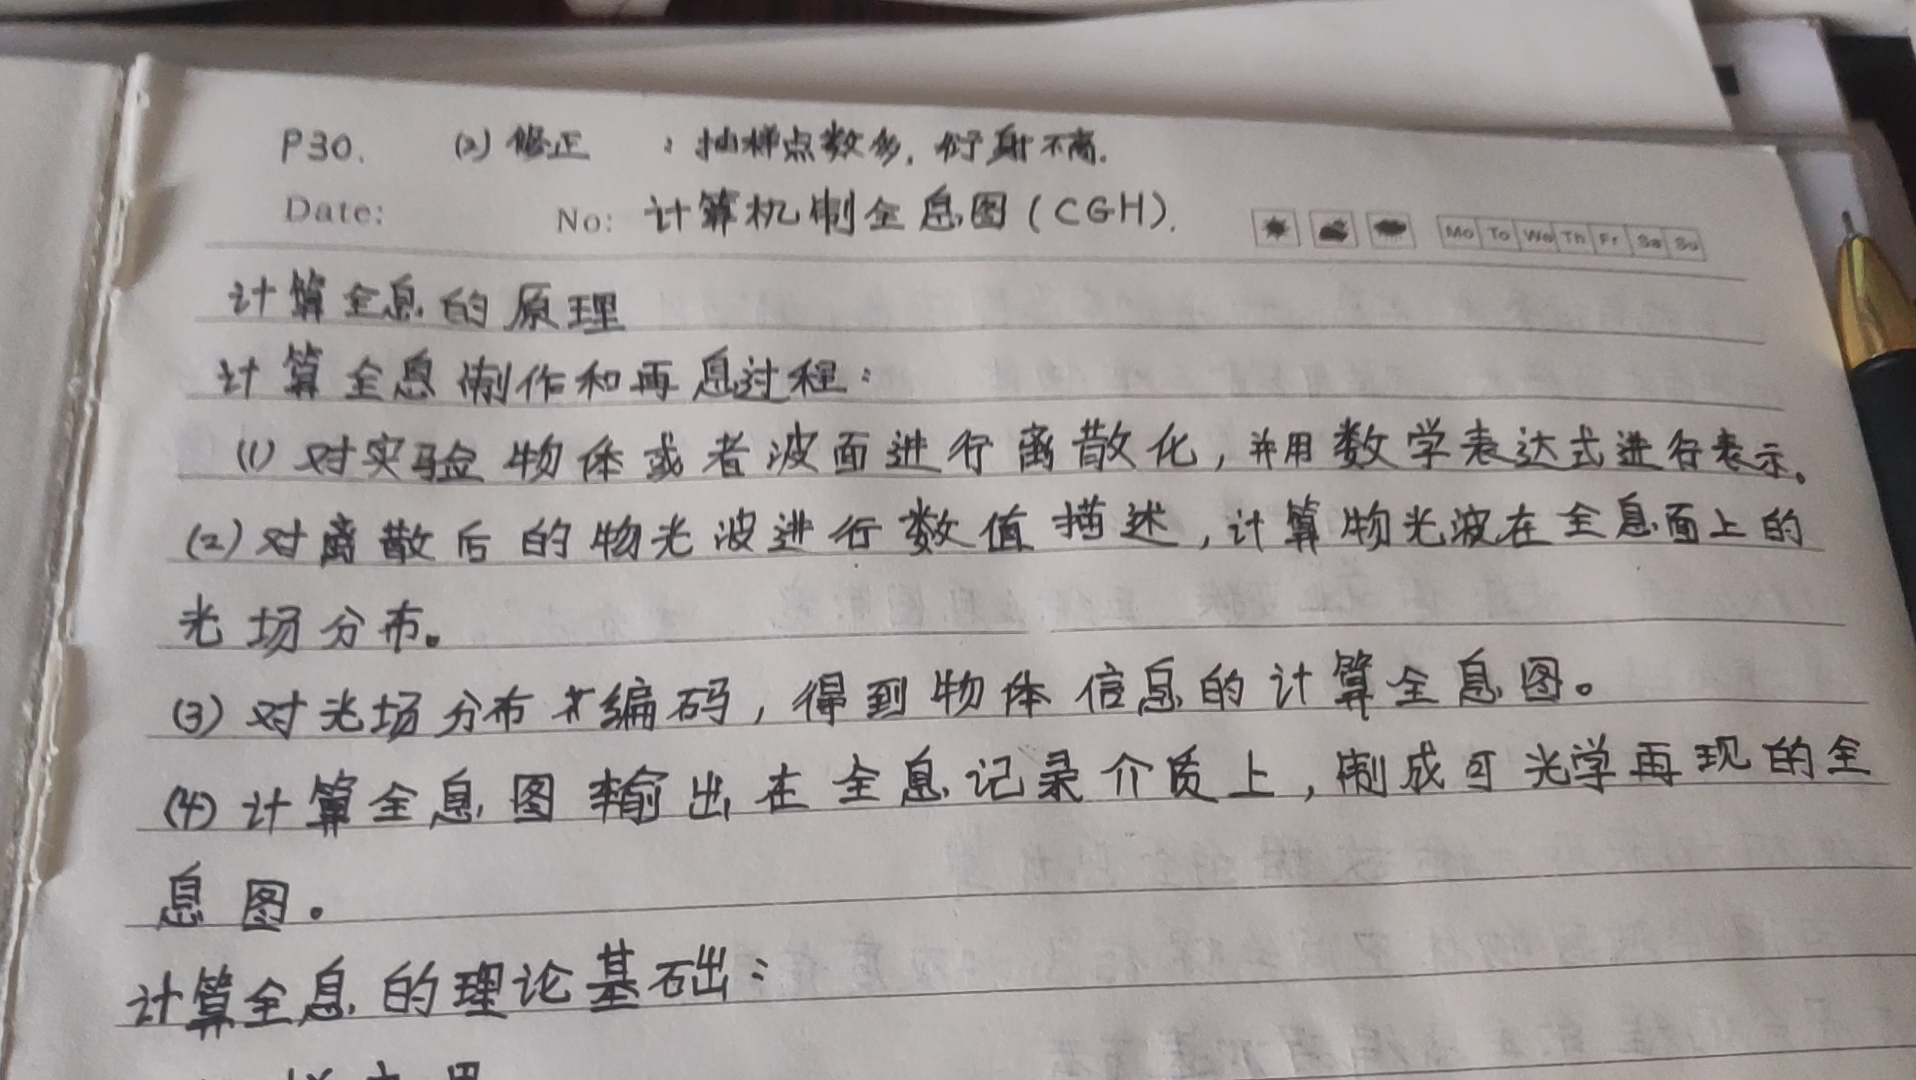 P30. (2) 修正 : 抽样点数多, 衍射不高.
Date: No: 计算机制全息图(CGH).
Mo To We Th Fr Sa Su
计算全息的原理
计算全息制作和再息过程:
(1) 对实验物体或者波面进行离散化, 并用数学表达式进行表示。
(2) 对离散后的物光波进行数值描述, 计算物光波在全息面上的
光场分布。
(3) 对光场分布编码, 得到物体信息的计算全息图。
(4) 计算全息图输出在全息记录介质上, 制成可光学再现的全
息图。
计算全息的理论基础: